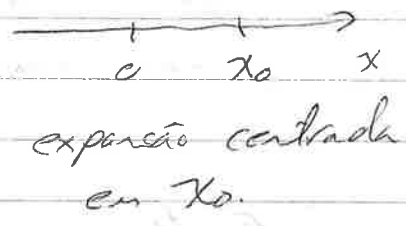 c x₀ x
expansão centrada
em x₀.